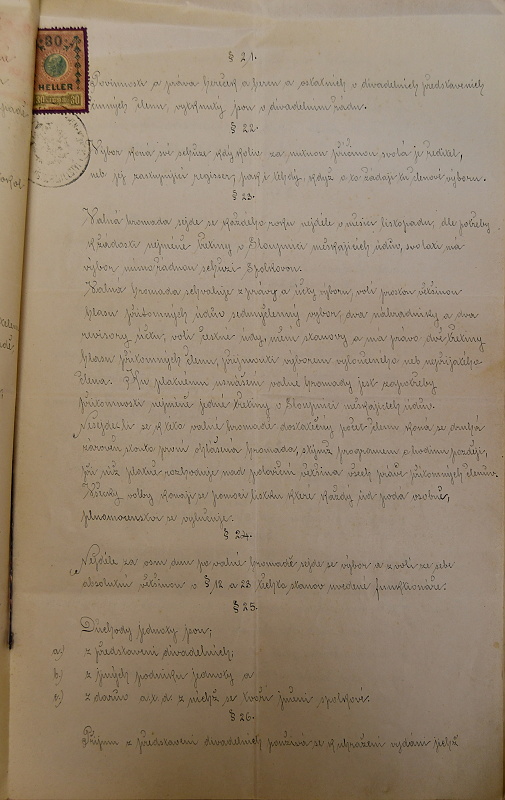 30
HELLER
§ 21.
Povinnosti a práva hereček a herců a ostatních o divadelních představeních
činných členů, vytknuty jsou v divadelním řádu.
§ 22.
Výbor koná své schůze kdykoliv za nutnou příčinou svolá je ředitel,
neb jej zastupující regisser, pak i tehdy, když o to žádají tři členové výboru.
§ 23.
Valná hromada sejde se každého roku nejdéle v měsíci listopadu, dle potřeby
k žádosti nejméně třetiny v Sloupnici meškajících údův, svolati má
výbor mimořádnou schůzi spolkovou.
Valná hromada schvaluje zprávy a účty výboru, volí prostou většinou
hlasů přítomných údův sedmičlenný výbor, dva náhradníky a dva
revisory účtů, volí čestné údy, mění stanovy a má právo dvě třetiny
hlasů přítomných členů, přijmouti výborem vyloučeného neb nepřijatého
člena. Ku platnému usnášení valné hromady jest zapotřebí
přítomnosti nejméně jedné třetiny v Sloupnici meškajících údův.
Nesejde-li se k této valné hromadě dostatečný počet členů koná se druhá
zároveň s touto první ohlášená hromada, s týmž programem o hodinu později,
při níž platně rozhoduje nad poloviční většina všech právě přítomných členův.
Všecky volby konají se pomocí lístkův které každý úd podá osobně,
plnomocenství se vylučuje.
§ 24.
Nejdéle za osm dnů po valné hromadě sejde se výbor a zvolí ze sebe
absolutní většinou v § 12 a 23 těchto stanov uvedené funkcionáře.
§ 25.
Důchody jednoty jsou;
a) z představení divadelních;
b) z jiných podniků jednoty a
c) z darův a.t.d. z nichž se tvoří jmění spolkové.
§ 26.
Příjem z představení divadelních používá se k uhražení vydání jichž